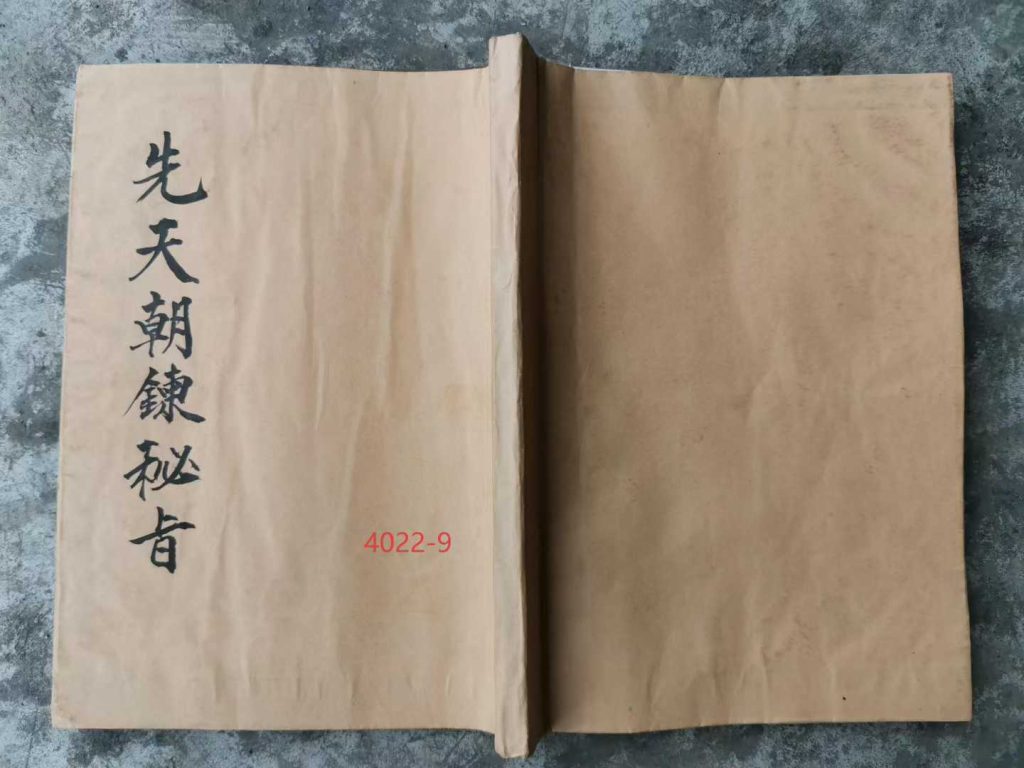 先天朝鍊秘旨
4022-9